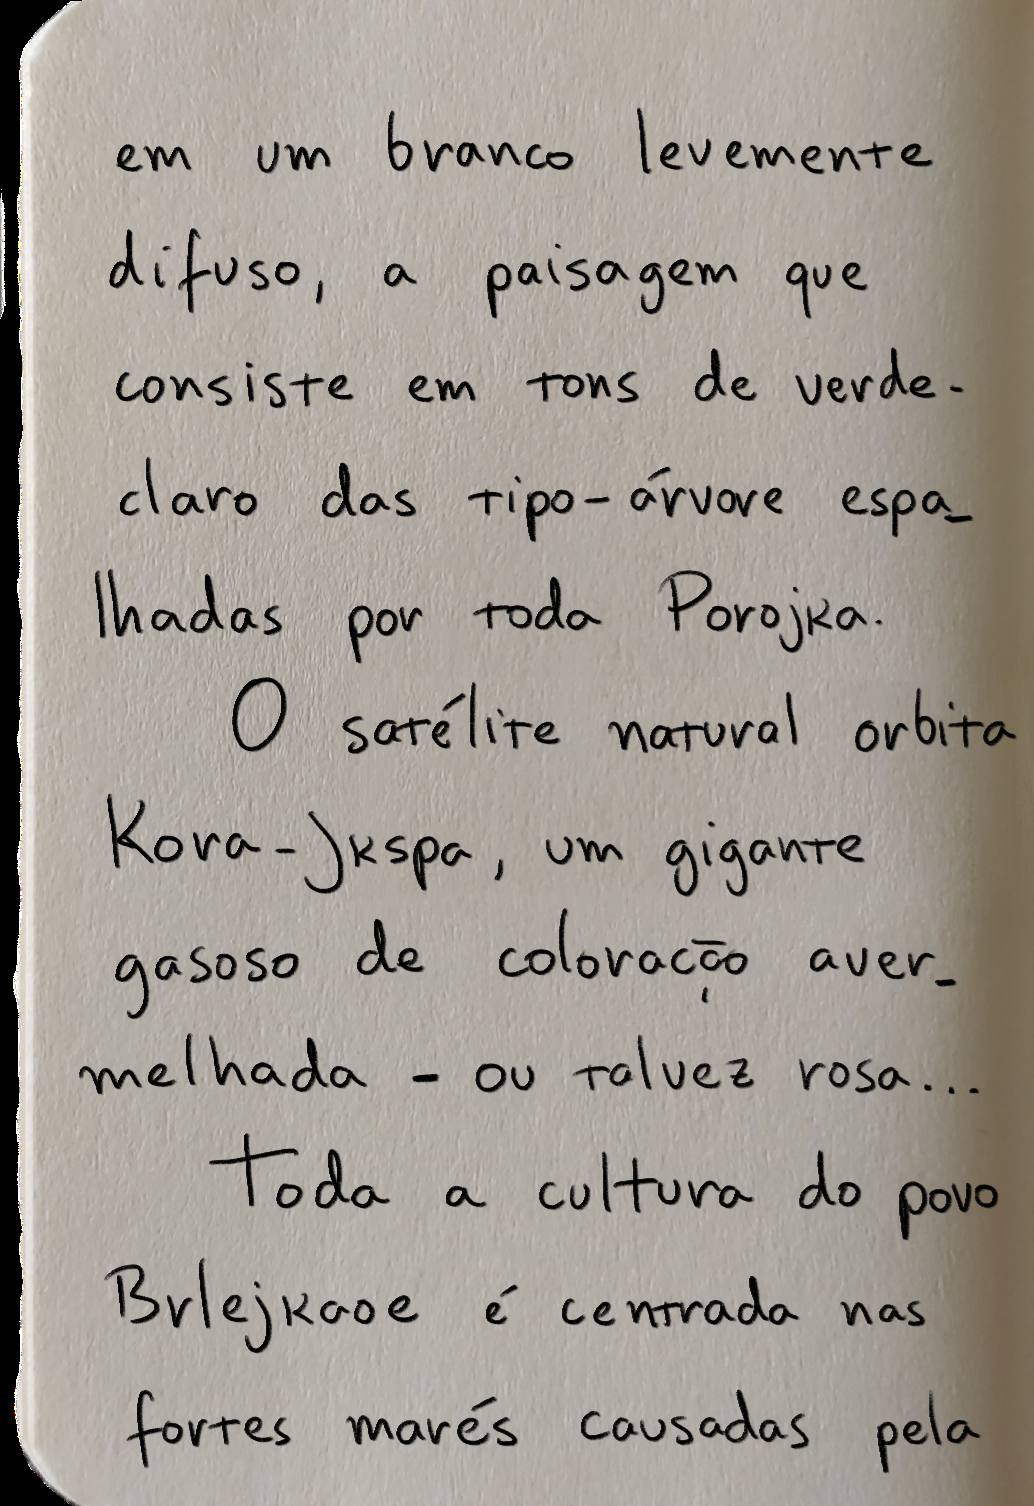 em um branco levemente
difuso, a paisagem que
consiste em tons de verde-
claro das tipo-árvore espa_
lhadas por toda Porojka.
O satélite natural orbita
Kora-Jkspa, um gigante
gasoso de coloração aver_
melhada - ou talvez rosa...
Toda a cultura do povo
Brlejkaoe é centrada nas
fortes marés causadas pela